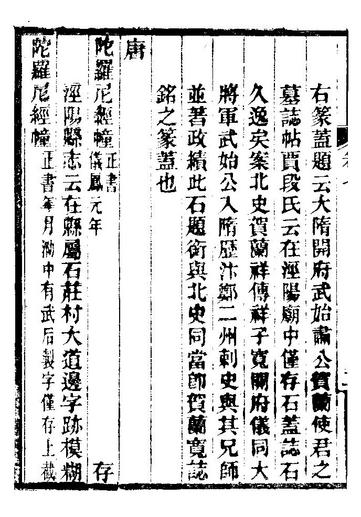 右篆蓋題云大隋開府武始肅公賀蘭使君之
墓誌帖賈段氏云在涇陽廟中僅存石蓋誌石
久逸矣案北史賀蘭祥傳祥子寬開府儀同大
將軍武始公入隋歷汴鄭二州刺史與其兄師
並著政績此石題銜與北史同當卽賀蘭寬誌
銘之篆蓋也
唐
陀羅尼經幢 正書 儀鳳元年 存
涇陽縣志云在縣屬石莊村大道邊字跡模糊
陀羅尼經幢 正書 年月泐中有武后製字僅存上截